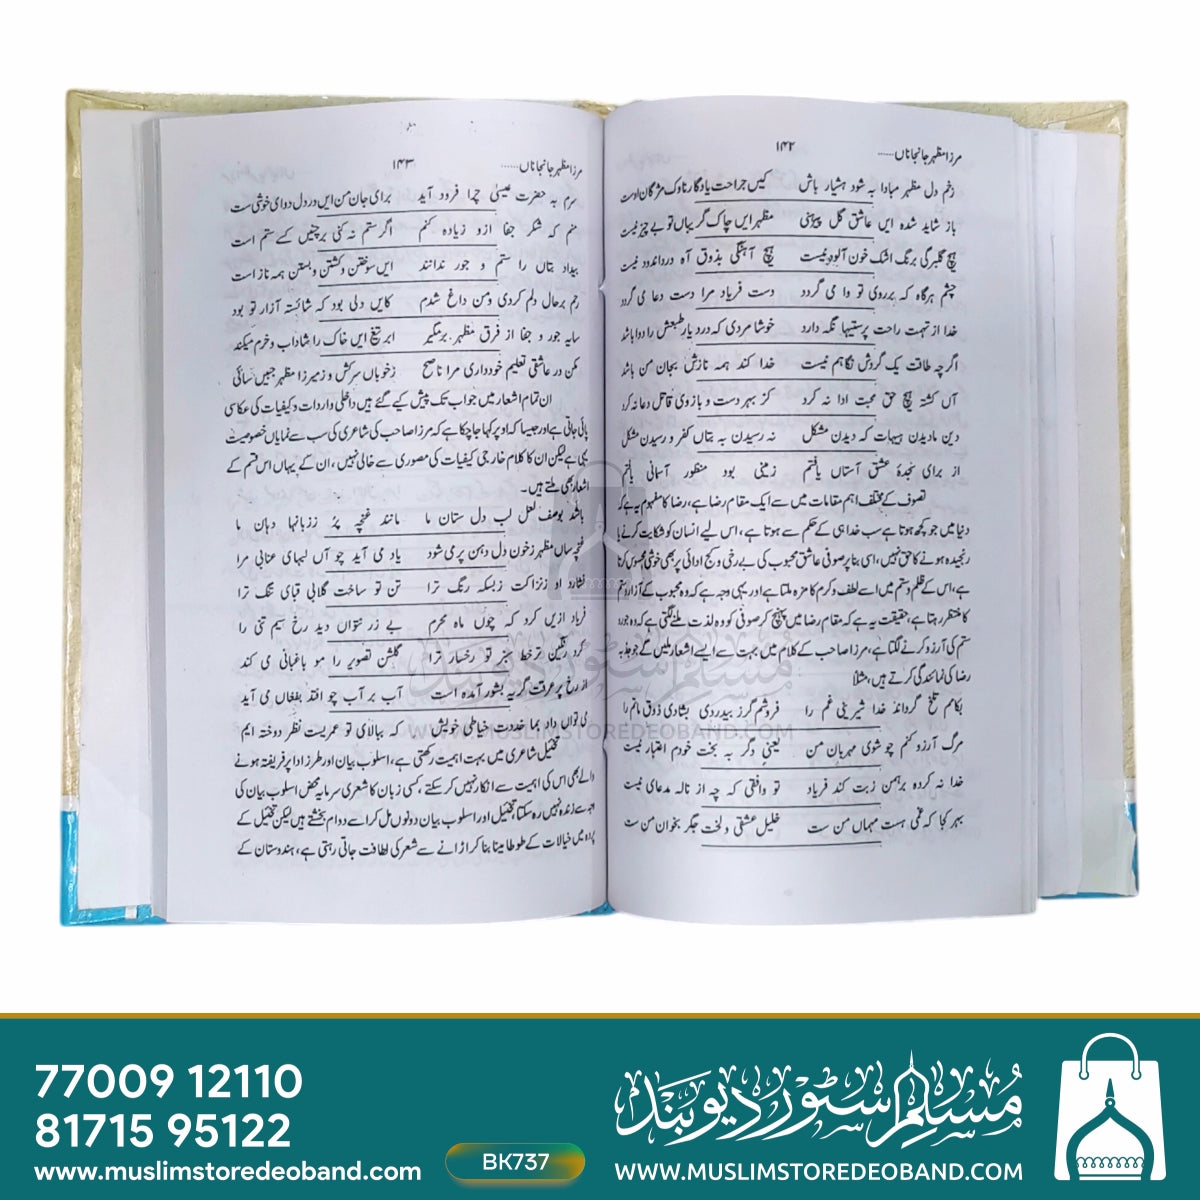 مرزا مظہر جانجاناں ......
۱۴۲
زخم دل مظہر مبادا به شود ہشیار باش کیں جراحت یادگار ناوک مژگان اوست
باز شاید شده ایں عاشق گل پیرہنی مظہر ایں چاک گریباں تو بے چیز نیست
ہیچ گلبرگی برنگ اشک خون آلود نیست ہیچ آہنگی بذوق آہ درد اندود نیست
چشم ہرگاہ کہ برروی تو وا می گردد دست فریاد مرا دست دعا می گردد
خدا از تہمت راحت پرستیہا نگہ دارد خوشا مردی کہ درد یار طبعش را دوا باشد
اگرچہ طاقت یک گردش نگاہم نیست خدا کند ہمہ نازش بجان من باشد
آں کشتہ ہیچ حق محبت ادا نہ کرد کز بہر دست و بازوی قاتل دعا نہ کرد
دین مادیدن ہیہات کہ دیدن مشکل نہ رسیدن بہ بتاں کفر و رسیدن مشکل
از برای سجدۂ عشق آستاں یافتم زمینی بود منظور آسمانی یافتم
تصوف کے مختلف اہم مقامات میں سے ایک مقام رضا ہے، رضا کا مفہوم یہ ہے کہ
دنیا میں جو کچھ ہوتا ہے سب خدا ہی کے حکم سے ہوتا ہے، اس لیے انسان کو شکایت کرنے یا
رنجیدہ ہونے کا حق نہیں، اسی بنا پر صوفی عاشق محبوب کی بے رخی و کج ادائی پر بھی خوشی محسوس کرتا
ہے، اس کے ظلم و ستم میں اسے لطف و کرم کا مزہ ملتا ہے اور یہی وجہ ہے کہ وہ محبوب کے آزار و ستم
کا منتظر رہتا ہے، حقیقت یہ ہے کہ مقام رضا میں پہنچ کر صوفی کو وہ لذت ملنے لگتی ہے کہ وہ جور و
ستم کی آرزو کرنے لگتا ہے، مرزا صاحب کے کلام میں بہت سے ایسے اشعار ملیں گے جو جذبہ
رضا کی نمائندگی کرتے ہیں، مثلاً
بکامم تلخ گرداند خدا شیرینی غم را فروشم گرز بیدردی بشادی ذوق ماتم را
مرگ آرزو کنم چو شوی مہربان من یعنی دگر بہ بخت خودم اعتبار نیست
خدا نہ کردہ برہمن زبت کند فریاد تو واقفی کہ چہ از نالہ مدعای نیست
بہر کجا کہ غمی ہست مہماں من ست خلیل عشقی و لخت جگر بخوان من ست
مرزا مظہر جانجاناں ......
۱۴۳
سرم بہ حضرت عیسیٰ چرا فرود آید برای جان من ایں درد دل دوای خوشی ست
منم کہ شکر جفا ازو زیادہ کنم اگر ستم نہ کنی برچنیں کسے ستم است
بیداد بتاں را ستم و جور ندانند ایں سوختن و کشتن و بستن ہمہ ناز است
رحم برحال دلم کردی ومن داغ شدم کایں دلی بود کہ شائستہ آزار تو بود
سایہ جور و جفا از فرق مظہر برمگیر ابر تیغ ایں خاک را شاداب و خرم میکند
مکن در عاشقی تعلیم خودداری مرا ناصح زخوباں سرکش و زمیرزا مظہر جبیں سائی
ان تمام اشعار میں جو اب تک پیش کیے گئے ہیں داخلی واردات و کیفیات کی عکاسی
پائی جاتی ہے اور جیسا کہ اوپر کہا جا چکا ہے کہ مرزا صاحب کی شاعری کی سب سے نمایاں خصوصیت
یہی ہے لیکن ان کا کلام خارجی کیفیات کی مصوری سے خالی نہیں، ان کے یہاں اس قسم کے
اشعار بھی ملتے ہیں۔
باشد بوصف لعل لب دل ستان ما مانند غنچہ پُر ززبانہا دہان ما
غنچہ ساں مظہر زخون دل دہن پر می شود یاد می آید چو آں لبہای عنابی مرا
فشارد او زنزاکت زبسکہ رنگ ترا تن تو ساخت گلابی قبای تنگ ترا
فریاد ازیں کرد کہ چوں ماہ محرم بے زر نتواں دید رخ سیم تنی را
کرد رنگین تر خط سبز تو رخسار ترا گلشن تصویر را مو باغبانی می کند
از رخ پر عرقت گریہ بشور آمدہ است آب بر آب چو افتد بفغاں می آید
می تواں داد بما خدمت خیاطی خویش کہ ببالای تو عمریست نظر دوختہ ایم
تخئیل شاعری میں بہت اہمیت رکھتی ہے، اسلوب بیان اور طرز ادا پر فریفتہ ہونے
والے بھی اس کی اہمیت سے انکار نہیں کرسکتے، کسی زبان کا شعری سرمایہ محض اسلوب بیان کی
وجہ سے زندہ نہیں رہ سکتا، تخئیل اور اسلوب بیان دونوں مل کر اسے دوام بخشتے ہیں لیکن تخئیل کے
پردہ میں خیالات کے طوطا مینا بنا کر اڑانے سے شعر کی لطافت جاتی رہتی ہے، ہندوستان کے
مسلم سٹور دیوبند
WWW.MUSLIMSTOREDEOBAND.COM
77009 12110
81715 95122
www.muslimstoredeoband.com
BK737
مسلم سٹور دیوبند
www.MUSLIMSTOREDEOBAND.COM